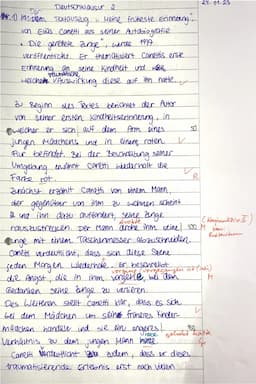 24.01.23
Deutschklausur 2
Nr. 1) In dem Textauszug "Meine früheste Erinnerung"
von Elias Canetti aus seiner Autobiografie
"Die gerettete Zunge", wurde 1977
veröffentlicht. Er thematisiert Canettis erste
Erinnerung an seine Kindheit und
traumatische
welche Auswirkung diese auf ihn hatte.
Zu Beginn des Textes berichtet der Autor
von seiner ersten Kindheitserinnerung, in
welcher er sich auf dem Arm eines 50
jungen Mädchens und in einem roten
Flur befindet. Bei der Beschreibung seiner
Umgebung erwähnt Canetti wiederholt die
Farbe rot. R
Zunächst erzählt Canetti von einem Mann,
der gegenüber von ihm zu wohnen scheint
und ihn dazu auffordert, seine Zunge
rauszustrecken. Der Mann drohte ihm seine 100 M
Zunge mit einem Taschenmesser abzuschneiden.
Canetti verdeutlicht, dass sich diese Szene
jeden Morgen wiederhole. Er beschreibt
die Angst, die in ihm vorgehe, bei dem M
Gedanken seine Zunge zu verlieren.
Des Weiteren stellt Canetti klar, dass es sich
bei dem Mädchen um sein früheres Kinder-
mädchen handele und sie ein engeres
Verhältnis zu dem jungen Mann
Canetti verdeutlicht zudem, dass er dieses
traumatisierende Erlebnis erst nach vielen